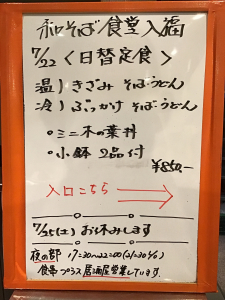 和そば食堂入福
7/22〈日替定食〉
温)きざみ そばうどん
冷)ぶっかけ そばうどん
・ミニ木の葉丼
・小鉢 2品付
¥850-
入口こちら→
7/25(土)お休みします
夜の部 17:30〜22:00(21:30 L/O)
食事プラス居酒屋営業しています。